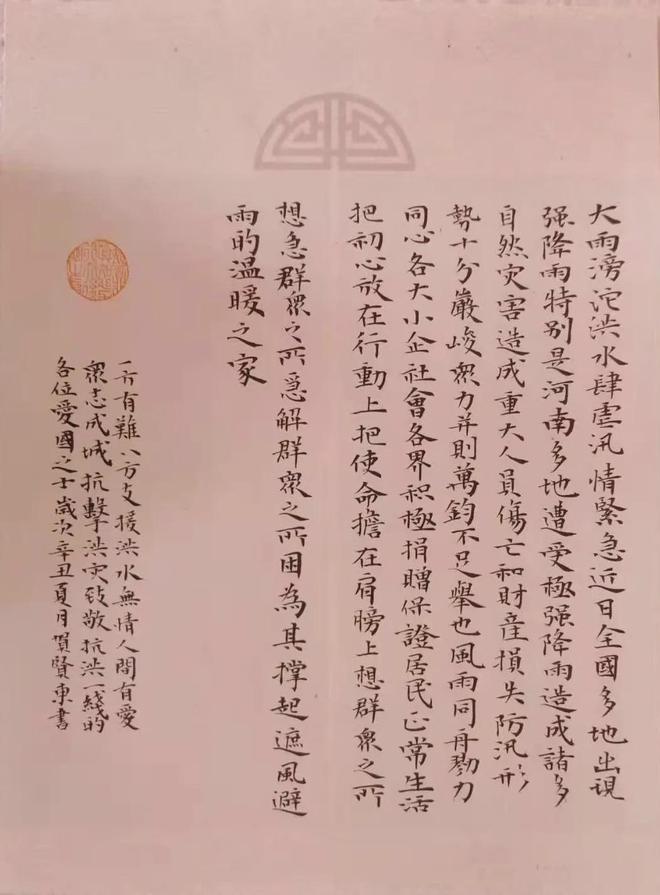 大雨滂沱洪水肆虐汛情緊急近日全國多地出現
强降雨特别是河南多地遭受極强降雨造成諸多
自然灾害造成重大人員傷亡和財産損失防汛形
勢十分嚴峻眾力并則萬鈞不足舉也風雨同舟勠力
同心各大小企社會各界积極捐贈保證居民正常生活
把初心放在行動上把使命擔在肩膀上想群眾之所
想急群眾之所急解群眾之所困為其撑起遮風避
雨的温暖之家
一方有難八方支援洪水無情人間有愛
眾志成城抗擊洪灾致敬抗洪一綫的
各位愛國之士歲次辛丑夏月賀賢東書